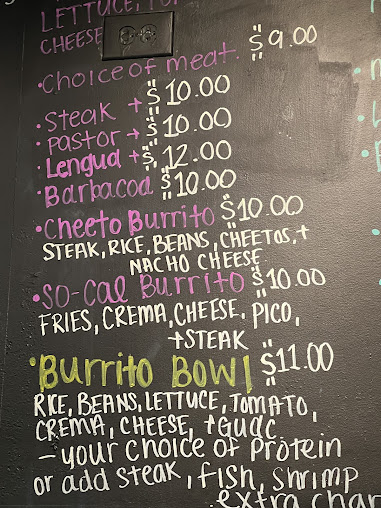 LETTUCE, TO
CHEESE
• Choice of meat. $9.00
• Steak → $10.00
• Pastor → $10.00
• Lengua → $12.00
• Barbacoa $10.00
• Cheeto Burrito $10.00
STEAK, RICE, BEANS, CHEETOS, +
NACHO CHEESE
• SO-Cal Burrito $10.00
FRIES, CREMA, CHEESE, PICO,
+STEAK
• Burrito Bowl $11.00
RICE, BEANS, LETTUCE, TOMATO,
CREMA, CHEESE, +GUAC
- your choice of protein
or add steak, fish, shrimp
extra char